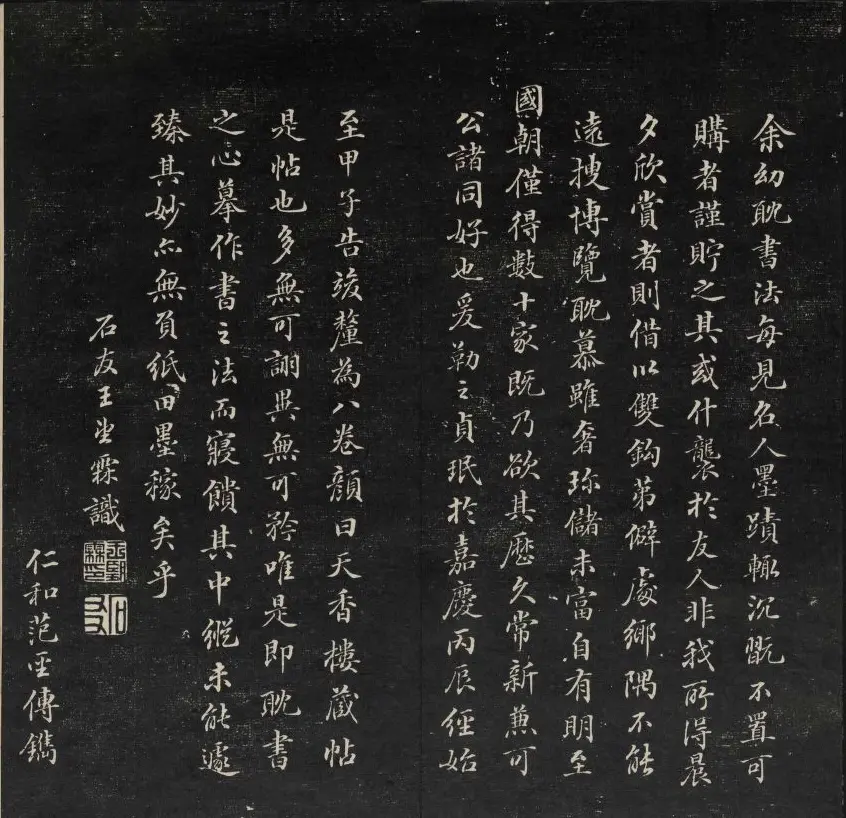 余幼耽書法每見名人墨蹟輒沉翫不置可
購者謹貯之其或什襲於友人非我所得晨
夕欣賞者則借以雙鈎苐僻處鄉隅不能
遠搜博覽耽慕雖奢珎儲未富自有明至
國朝僅得數十家既乃欲其歷久常新兼可
公諸同好也爰勒之貞珉於嘉慶丙辰經始
至甲子告竣釐為八卷顏曰天香樓藏帖
是帖也多無可詡異無可矜唯是即耽書
之心摹作書之法而寢饋其中縱未能遽
臻其妙亦無負紙田墨稼矣乎
石友王望霖識
王望霖印
石友
仁和范聖傳鐫